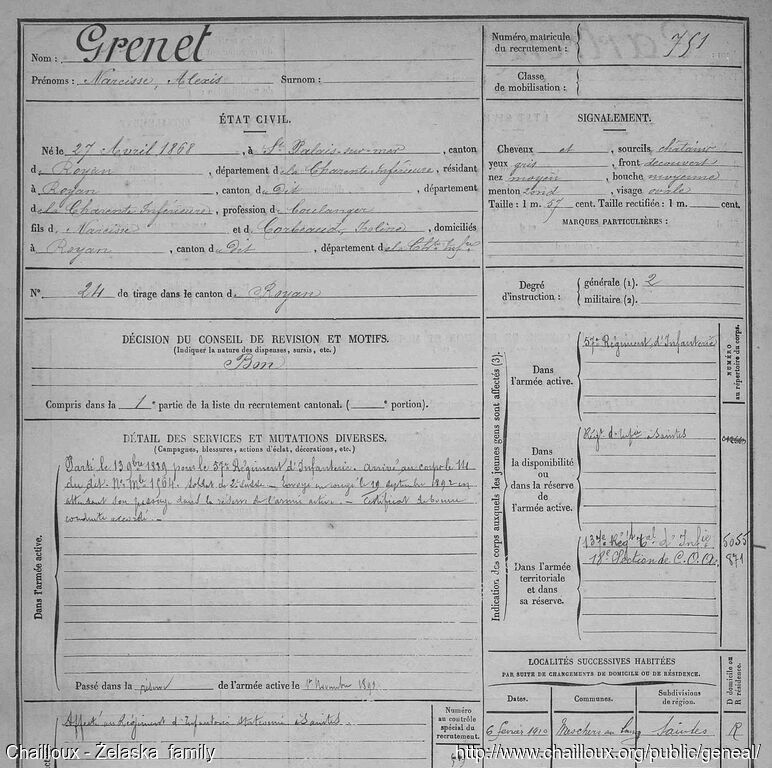 Nom : Grenet
Prénoms : Narcisse, Alexis Surnom :
Numéro matricule du recrutement : 751
Classe de mobilisation :
ÉTAT CIVIL.
Né le 27 Avril 1868, à St Palais-sur-mer, canton
d Royan, département de la Charente Inférieure, résidant
à Royan, canton de Dit, département
de la Charente Inférieure, profession de Boulanger
fils de Narcisse et d Corbeaud, domiciliés
à Royan, canton de Dit, département de la Chte Infre
N° 24 de tirage dans le canton d Royan
SIGNALEMENT.
Cheveux et sourcils châtains
yeux gris, front découvert
nez moyen, bouche moyenne
menton rond, visage ovale
Taille : 1 m. 57 cent. Taille rectifiée : 1 m. cent.
MARQUES PARTICULIÈRES :
Degré d'instruction : générale (1). 2
militaire (2).
DÉCISION DU CONSEIL DE REVISION ET MOTIFS.
(Indiquer la nature des dispenses, sursis, etc.)
Bon
Compris dans la 1e partie de la liste du recrutement cantonal. ( e portion).
DÉTAIL DES SERVICES ET MUTATIONS DIVERSES.
(Campagnes, blessures, actions d'éclat, décorations, etc.)
Dans l'armée active.
Parti le 13 9bre 1889 pour le 57e Régiment d'Infanterie. Arrivé au corps le 14
du dit. No Mle 1564. Soldat de 2e classe - Envoyé en congé le 29 septembre 1892 en
attendant son passage dans la réserve de l'armée active - Certificat de bonne
conduite accordé -
Passé dans la réserve de l'armée active le 1er Novembre 1892
Affecté au Régiment d'Infanterie Saintes
Numéro au contrôle spécial du recrutement.
Indication des corps auxquels les jeunes gens sont affectés (3).
NUMÉRO au répertoire du corps.
Dans l'armée active.
57e Régiment d'Infanterie
Dans la disponibilité ou dans la réserve de l'armée active.
Régt d'Infie Saintes
Dans l'armée territoriale et dans sa réserve.
137e Régt tal d'Infie 5055
18e Section de C.O.A. 871
LOCALITÉS SUCCESSIVES HABITÉES
PAR SUITE DE CHANGEMENTS DE DOMICILE OU DE RÉSIDENCE.
Dates. Communes. Subdivisions de région. D domicile ou R résidence.
6 février 1910 Saintes R
Chailloux - Zelaska family
http://www.chailloux.org/public/geneal/